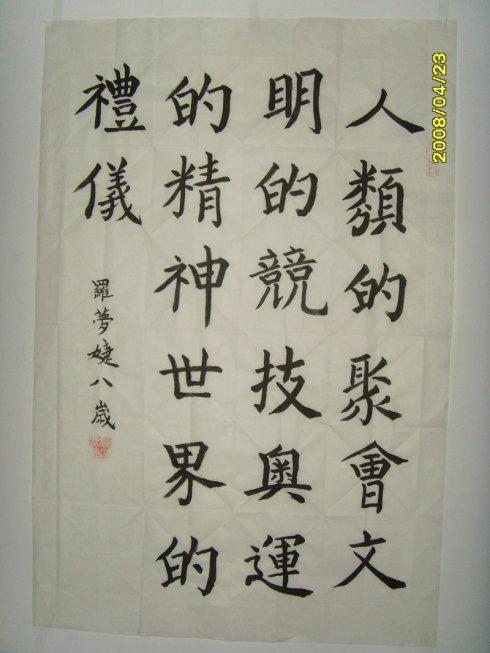 人類的聚會文
明的競技奧運
的精神世界的
禮儀
羅夢婕八歲
2008/04/23